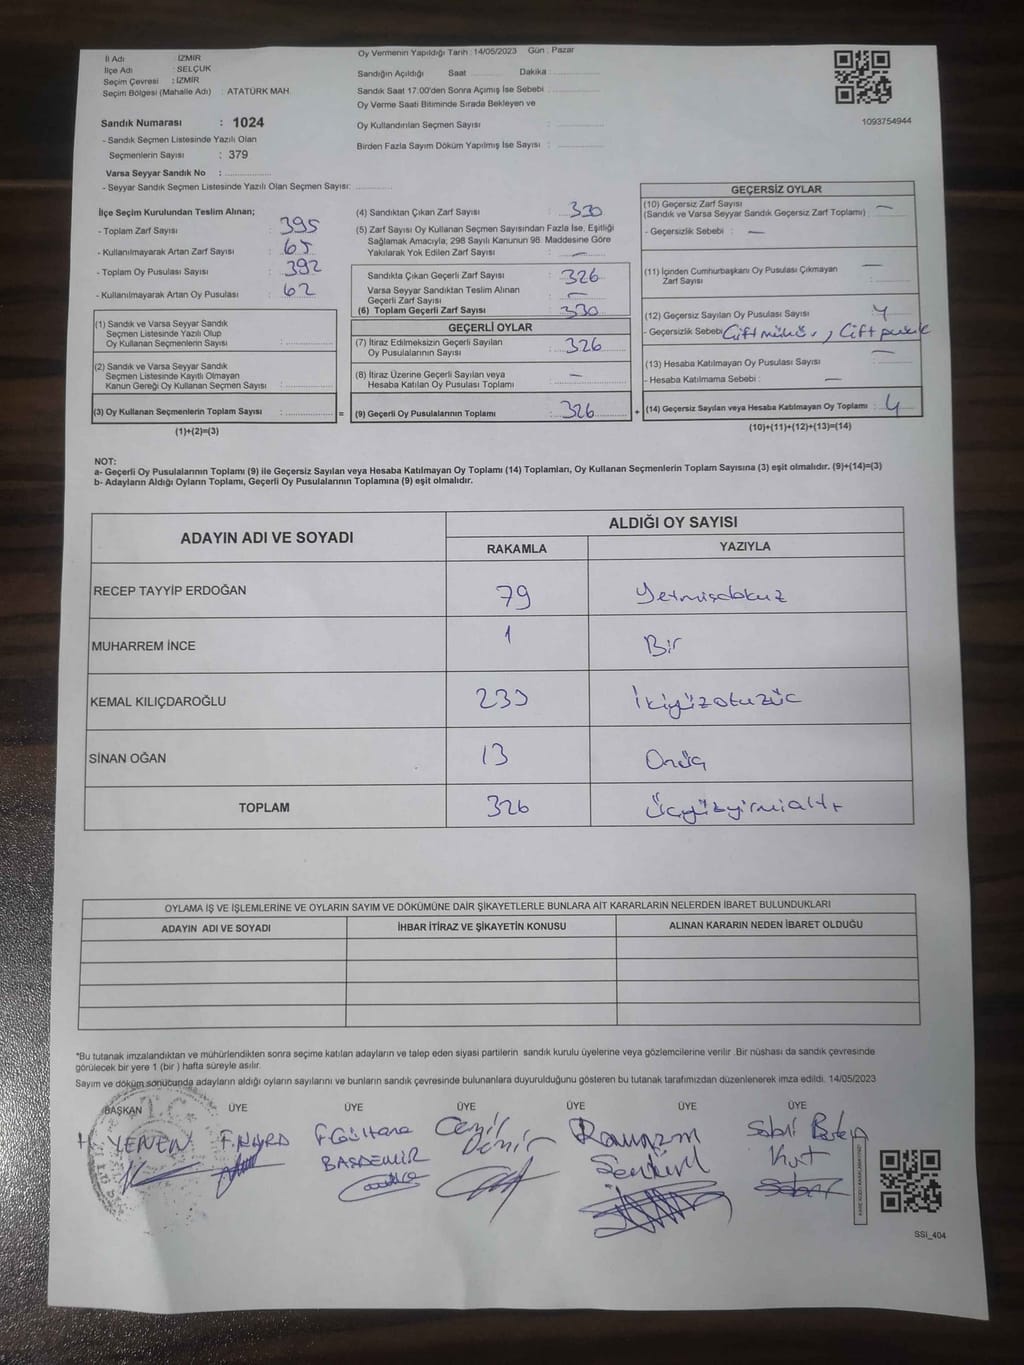 İl Adı : İZMİR
İlçe Adı : SELÇUK
Seçim Çevresi : İZMİR
Seçim Bölgesi (Mahalle Adı) : ATATÜRK MAH.
Sandık Numarası : 1024
- Sandık Seçmen Listesinde Yazılı Olan
Seçmenlerin Sayısı : 379
Varsa Seyyar Sandık No :
- Seyyar Sandık Seçmen Listesinde Yazılı Olan Seçmen Sayısı:
Oy Vermenin Yapıldığı Tarih : 14/05/2023 Gün : Pazar
Sandığın Açıldığı Saat Dakika :
Sandık Saat 17.00'den Sonra Açımış İse Sebebi :
Oy Verme Saati Bitiminde Sırada Bekleyen ve
Oy Kullandırılan Seçmen Sayısı :
Birden Fazla Sayım Döküm Yapılmış İse Sayısı :
1093754944
İlçe Seçim Kurulundan Teslim Alınan;
- Toplam Zarf Sayısı : 395
- Kullanılmayarak Artan Zarf Sayısı : 65
- Toplam Oy Pusulası Sayısı : 392
- Kullanılmayarak Artan Oy Pusulası : 62
(1) Sandık ve Varsa Seyyar Sandık
Seçmen Listesinde Yazılı Olup
Oy Kullanan Seçmenlerin Sayısı :
(2) Sandık ve Varsa Seyyar Sandık
Seçmen Listesinde Kayıtlı Olmayan
Kanun Gereği Oy Kullanan Seçmen Sayısı :
(3) Oy Kullanan Seçmenlerin Toplam Sayısı :
(1)+(2)=(3)
=
(4) Sandıktan Çıkan Zarf Sayısı : 330
(5) Zarf Sayısı Oy Kullanan Seçmen Sayısından Fazla İse, Eşitliği
Sağlamak Amacıyla; 298 Sayılı Kanunun 98. Maddesine Göre
Yakılarak Yok Edilen Zarf Sayısı : —
Sandıkta Çıkan Geçerli Zarf Sayısı : 326
Varsa Seyyar Sandıktan Teslim Alınan
Geçerli Zarf Sayısı : —
(6) Toplam Geçerli Zarf Sayısı : 330
GEÇERLİ OYLAR
(7) İtiraz Edilmeksizin Geçerli Sayılan
Oy Pusulalarının Sayısı : 326
(8) İtiraz Üzerine Geçerli Sayılan veya
Hesaba Katılan Oy Pusulası Toplamı : —
(9) Geçerli Oy Pusulalarının Toplamı : 326
+
GEÇERSİZ OYLAR
(10) Geçersiz Zarf Sayısı : —
(Sandık ve Varsa Seyyar Sandık Geçersiz Zarf Toplamı)
- Geçersizlik Sebebi : —
(11) İçinden Cumhurbaşkanı Oy Pusulası Çıkmayan —
Zarf Sayısı :
(12) Geçersiz Sayılan Oy Pusulası Sayısı : 4
- Geçersizlik Sebebi Çift mühür, Çift pusula
(13) Hesaba Katılmayan Oy Pusulası Sayısı : —
- Hesaba Katılmama Sebebi : —
(14) Geçersiz Sayılan veya Hesaba Katılmayan Oy Toplamı : 4
(10)+(11)+(12)+(13)=(14)
NOT:
a- Geçerli Oy Pusulalarının Toplamı (9) ile Geçersiz Sayılan veya Hesaba Katılmayan Oy Toplamı (14) Toplamları, Oy Kullanan Seçmenlerin Toplam Sayısına (3) eşit olmalıdır. (9)+(14)=(3)
b- Adayların Aldığı Oyların Toplamı, Geçerli Oy Pusulalarının Toplamına (9) eşit olmalıdır.
ADAYIN ADI VE SOYADI
ALDIĞI OY SAYISI
RAKAMLA YAZIYLA
RECEP TAYYİP ERDOĞAN 79 Yetmişdokuz
MUHARREM İNCE 1 Bir
KEMAL KILIÇDAROĞLU 233 İkiyüzotuzüç
SİNAN OĞAN 13 Onüç
TOPLAM 326 Üçyüzyirmialtı
OYLAMA İŞ VE İŞLEMLERİNE VE OYLARIN SAYIM VE DÖKÜMÜNE DAİR ŞİKAYETLERLE BUNLARA AİT KARARLARIN NELERDEN İBARET BULUNDUKLARI
ADAYIN ADI VE SOYADI İHBAR İTİRAZ VE ŞİKAYETİN KONUSU ALINAN KARARIN NEDEN İBARET OLDUĞU
*Bu tutanak imzalandıktan ve mühürlendikten sonra seçime katılan adayların ve talep eden siyasi partilerin sandık kurulu üyelerine veya gözlemcilerine verilir .Bir nüshası da sandık çevresinde
görülecek bir yere 1 (bir ) hafta süreyle asılır.
Sayım ve döküm sonucunda adayların aldığı oyların sayılarını ve bunların sandık çevresinde bulunanlara duyurulduğunu gösteren bu tutanak tarafımızdan düzenlenerek imza edildi. 14/05/2023
BAŞKAN ÜYE ÜYE ÜYE ÜYE ÜYE ÜYE
T.C.
H. YENEN
F. Gülhane
BAŞDEMİR
Cemil
Demir
Ramazan
Sabri
Kurt
SSİ_404